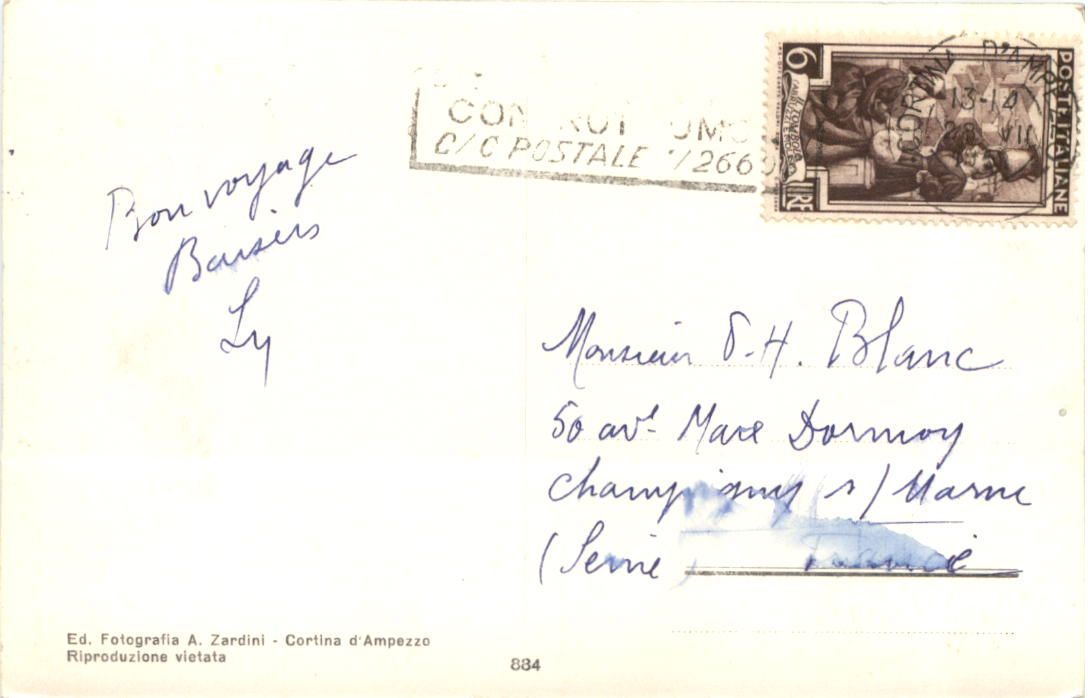 Bon voyage
Baisers
Ly
CON
C/C POSTALE 1/266
6
LIRE
POSTE ITALIANE
CORTINA D'AMPEZZO
13-14
28 VII
Monsieur P-H. Blanc
50 avᵉ Marx Dormoy
Champigny s/Marne
(Seine)
France
Ed. Fotografia A. Zardini - Cortina d'Ampezzo
Riproduzione vietata
884